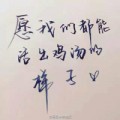 愿我们都能
活出鸡汤的
样子。